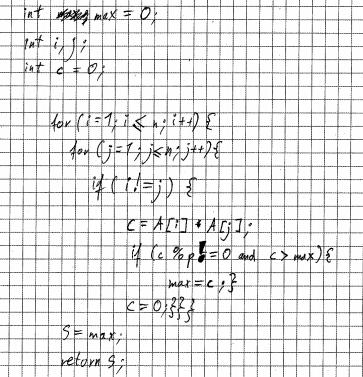 int max = 0;
int i, j;
int c = 0;
for (i=1; i ≤ n; i++) {
for (j=1; j≤n; j++) {
if ( i != j ) {
c = A[i] + A[j];
if (c % p != 0 and c > max) {
max = c ; }
c = 0; }}}
S = max;
return S;